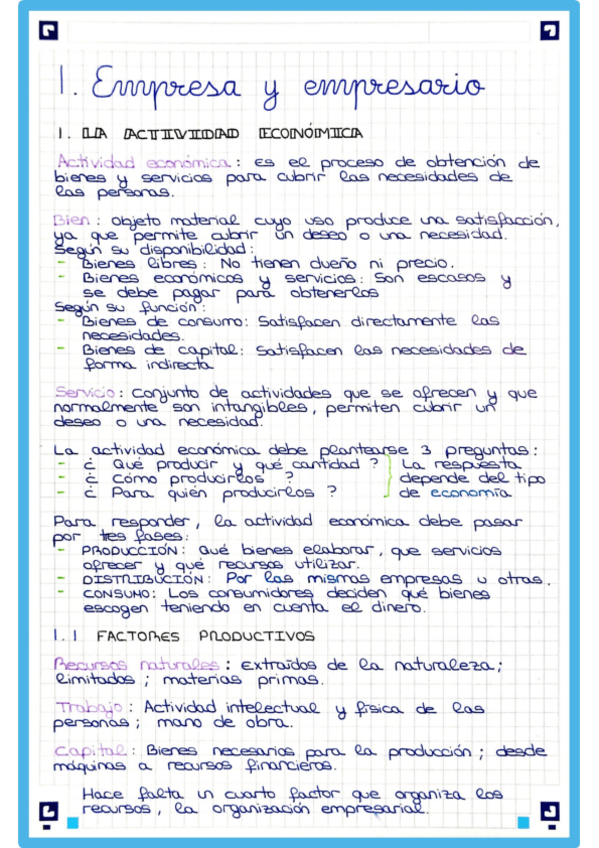 1. Empresa y empresario
1. LA ACTIVIDAD ECONÓMICA
Actividad económica: Es el proceso de obtención de
bienes y servicios para cubrir las necesidades de
las personas.
Bien: objeto material cuyo uso produce una satisfacción,
ya que permite cubrir un deseo o una necesidad.
Según su disponibilidad:
- Bienes libres: No tienen dueño ni precio.
- Bienes económicos y servicios: Son escasos y
se debe pagar para obtenerlos
Según su función:
- Bienes de consumo: Satisfacen directamente las
necesidades.
- Bienes de capital: Satisfacen las necesidades de
forma indirecta
Servicio: Conjunto de actividades que se ofrecen y que
normalmente son intangibles, permiten cubrir un
deseo o una necesidad.
La actividad económica debe plantearse 3 preguntas:
- ¿ Qué producir y qué cantidad ? La respuesta
- ¿ Cómo producirlos ? depende del tipo
- ¿ Para quién producirlos ? de economía
Para responder, la actividad económica debe pasar
por tres fases:
- PRODUCCIÓN: Qué bienes elaborar, que servicios
ofrecer y qué recursos utilizar.
- DISTRIBUCIÓN: Por las mismas empresas u otras.
- CONSUMO: Los consumidores deciden qué bienes
escogen teniendo en cuenta el dinero.
1.1 FACTORES PRODUCTIVOS
Recursos naturales: Extraídos de la naturaleza;
limitados; materias primas.
Trabajo: Actividad intelectual y física de las
personas; mano de obra.
Capital: Bienes necesarios para la producción; desde
máquinas a recursos financieros.
Hace falta un cuarto factor que organiza los
recursos, la organización empresarial.